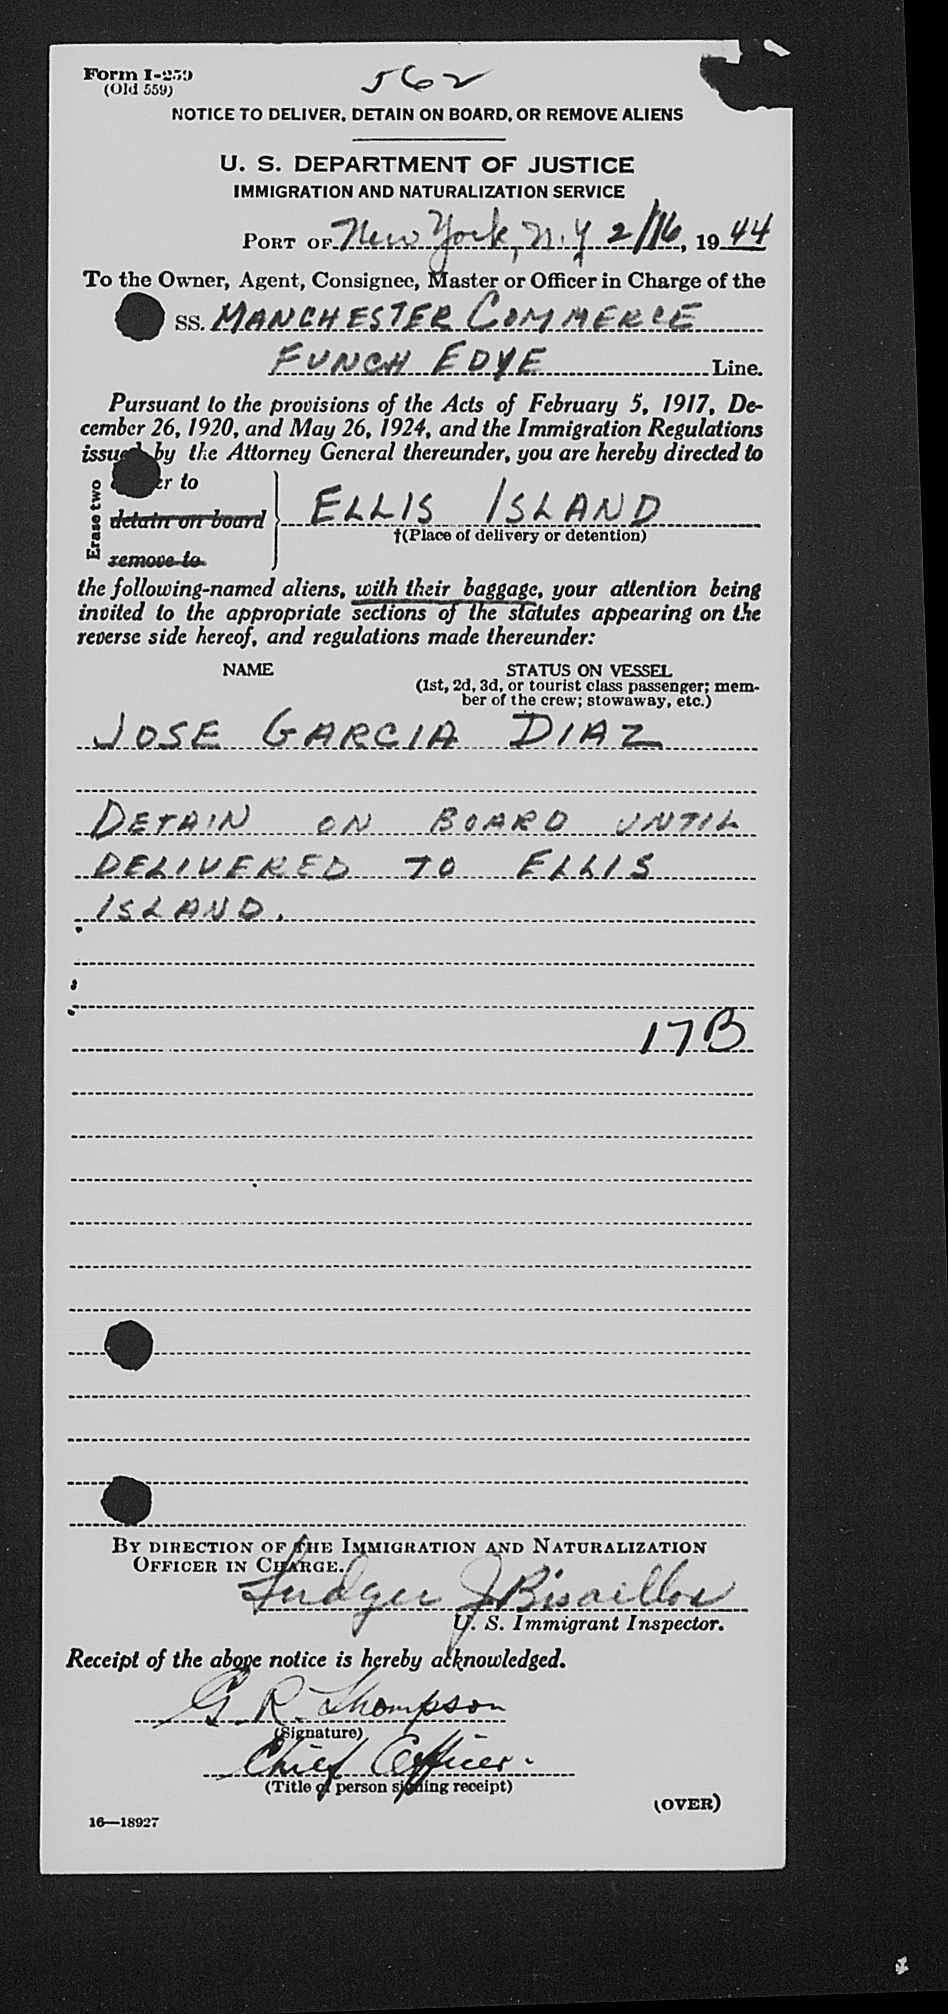 Form I-259
(Old 559)
562
NOTICE TO DELIVER, DETAIN ON BOARD, OR REMOVE ALIENS
U. S. DEPARTMENT OF JUSTICE
IMMIGRATION AND NATURALIZATION SERVICE
PORT OF New York, N.Y 2/16, 1944
To the Owner, Agent, Consignee, Master or Officer in Charge of the
SS. MANCHESTER COMMERCE
FUNCH EDYE Line.
Pursuant to the provisions of the Acts of February 5, 1917, De-
cember 26, 1920, and May 26, 1924, and the Immigration Regulations
issued by the Attorney General thereunder, you are hereby directed to
Erase two
er to
detain on board
remove to
ELLIS ISLAND
†(Place of delivery or detention)
the following-named aliens, with their baggage, your attention being
invited to the appropriate sections of the statutes appearing on the
reverse side hereof, and regulations made thereunder:
NAME STATUS ON VESSEL
(1st, 2d, 3d, or tourist class passenger; mem-
ber of the crew; stowaway, etc.)
JOSE GARCIA DIAZ
DETAIN ON BOARD UNTIL
DELIVERED TO ELLIS
ISLAND.
17B
BY DIRECTION OF THE IMMIGRATION AND NATURALIZATION
OFFICER IN CHARGE.
Ludger J Bisaillon
U. S. Immigrant Inspector.
Receipt of the above notice is hereby acknowledged.
G. R. Thompson
(Signature)
Chief Officer.
(Title of person signing receipt)
(OVER)
16—18927